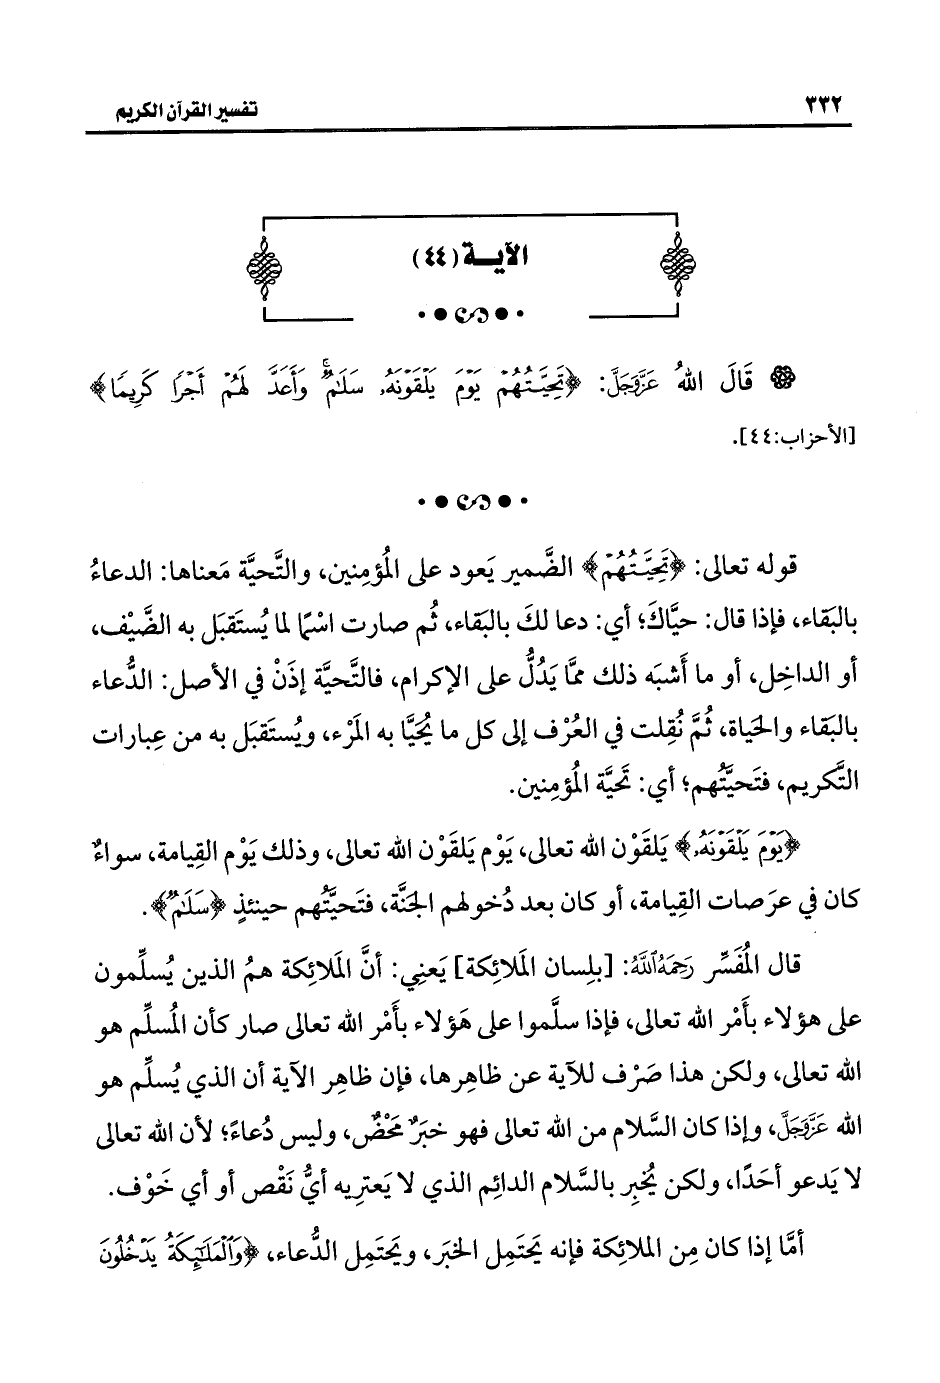 ٣٣٢
تفسير القرآن الكريم
الآيــة (٤٤)
قَالَ اللهُ عَزَّوَجَلَّ: ﴿تَحِيَّتُهُمْ يَوْمَ يَلْقَوْنَهُۥ سَلَٰمٌۚ وَأَعَدَّ لَهُمْ أَجْرًا كَرِيمًا﴾
[الأحزاب:٤٤].
قوله تعالى: ﴿تَحِيَّتُهُمْ﴾ الضَّمير يَعود على المُؤمِنين، والتَّحيَّة مَعناها: الدعاءُ
بالبَقاء، فإذا قال: حيَّاكَ؛ أي: دعا لكَ بالبَقاء، ثُم صارت اسْمًا لما يُستَقبَل به الضَّيْف،
أو الداخِل، أو ما أَشبَه ذلك ممَّا يَدُلُّ على الإكرام، فالتَّحيَّة إذَنْ في الأصل: الدُّعاء
بالبَقاء والحَياة، ثُمَّ نُقِلت في العُرْف إلى كل ما يُحَيَّا به المَرْء، ويُستَقبَل به من عِبارات
التَّكريم، فتَحيَّتُهم؛ أي: تَحيَّة المُؤمِنين.
﴿يَوْمَ يَلْقَوْنَهُۥ﴾ يَلقَوْن الله تعالى، يَوْم يَلقَوْن الله تعالى، وذلك يَوْم القِيامة، سواءٌ
كان في عرَصات القِيامة، أو كان بعد دُخولهم الجنَّة، فتَحيَّتُهم حينئذٍ ﴿سَلَٰمٌ﴾.
قال المُفَسِّر رَحِمَهُ ٱللَّهُ: [بلِسان المَلائِكة] يَعنِي: أنَّ المَلائِكة همُ الذين يُسلِّمون
على هؤلاء بأَمْر الله تعالى، فإذا سلَّموا على هَؤلاء بأَمْر الله تعالى صار كأن المُسلِّم هو
الله تعالى، ولكن هذا صَرْف للآية عن ظاهِرها، فإن ظاهِر الآية أن الذي يُسلِّم هو
الله عَزَّوَجَلَّ، وإذا كان السَّلام من الله تعالى فهو خبَرٌ مَحْضٌ، وليس دُعاءً؛ لأن الله تعالى
لا يَدعو أحَدًا، ولكن يُخبِر بالسَّلام الدائِم الذي لا يَعتَريه أيُّ نَقْص أو أي خَوْف.
أمَّا إذا كان مِن الملائكة فإنه يَحتَمِل الخبَر، ويَحتَمِل الدُّعاء، ﴿وَٱلْمَلَٰٓئِكَةُ يَدْخُلُونَ